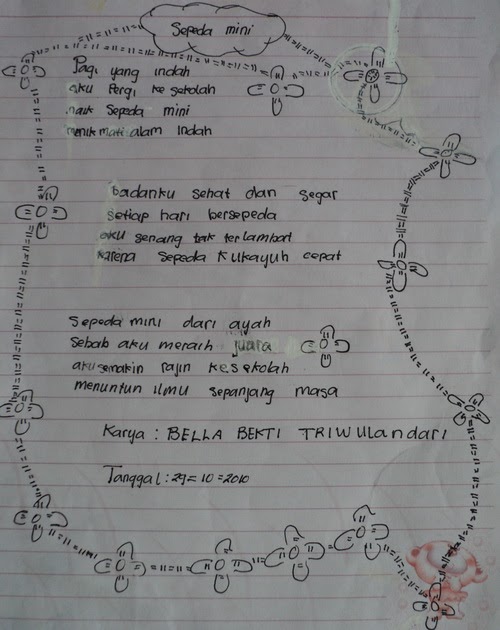 Sepeda mini
Pagi yang indah
aku Pergi ke sekolah
naik Sepeda mini
menikmati alam indah
badanku sehat dan segar
setiap hari bersepeda
aku senang tak terlambat
karena sepeda kukayuh cepat
Sepeda mini dari ayah
Sebab aku meraih juara
aku semakin rajin kesekolah
menuntun ilmu sepanjang masa
Karya : BELLA BEKTI TRIWulandari
Tanggal : 29 = 10 = 2010